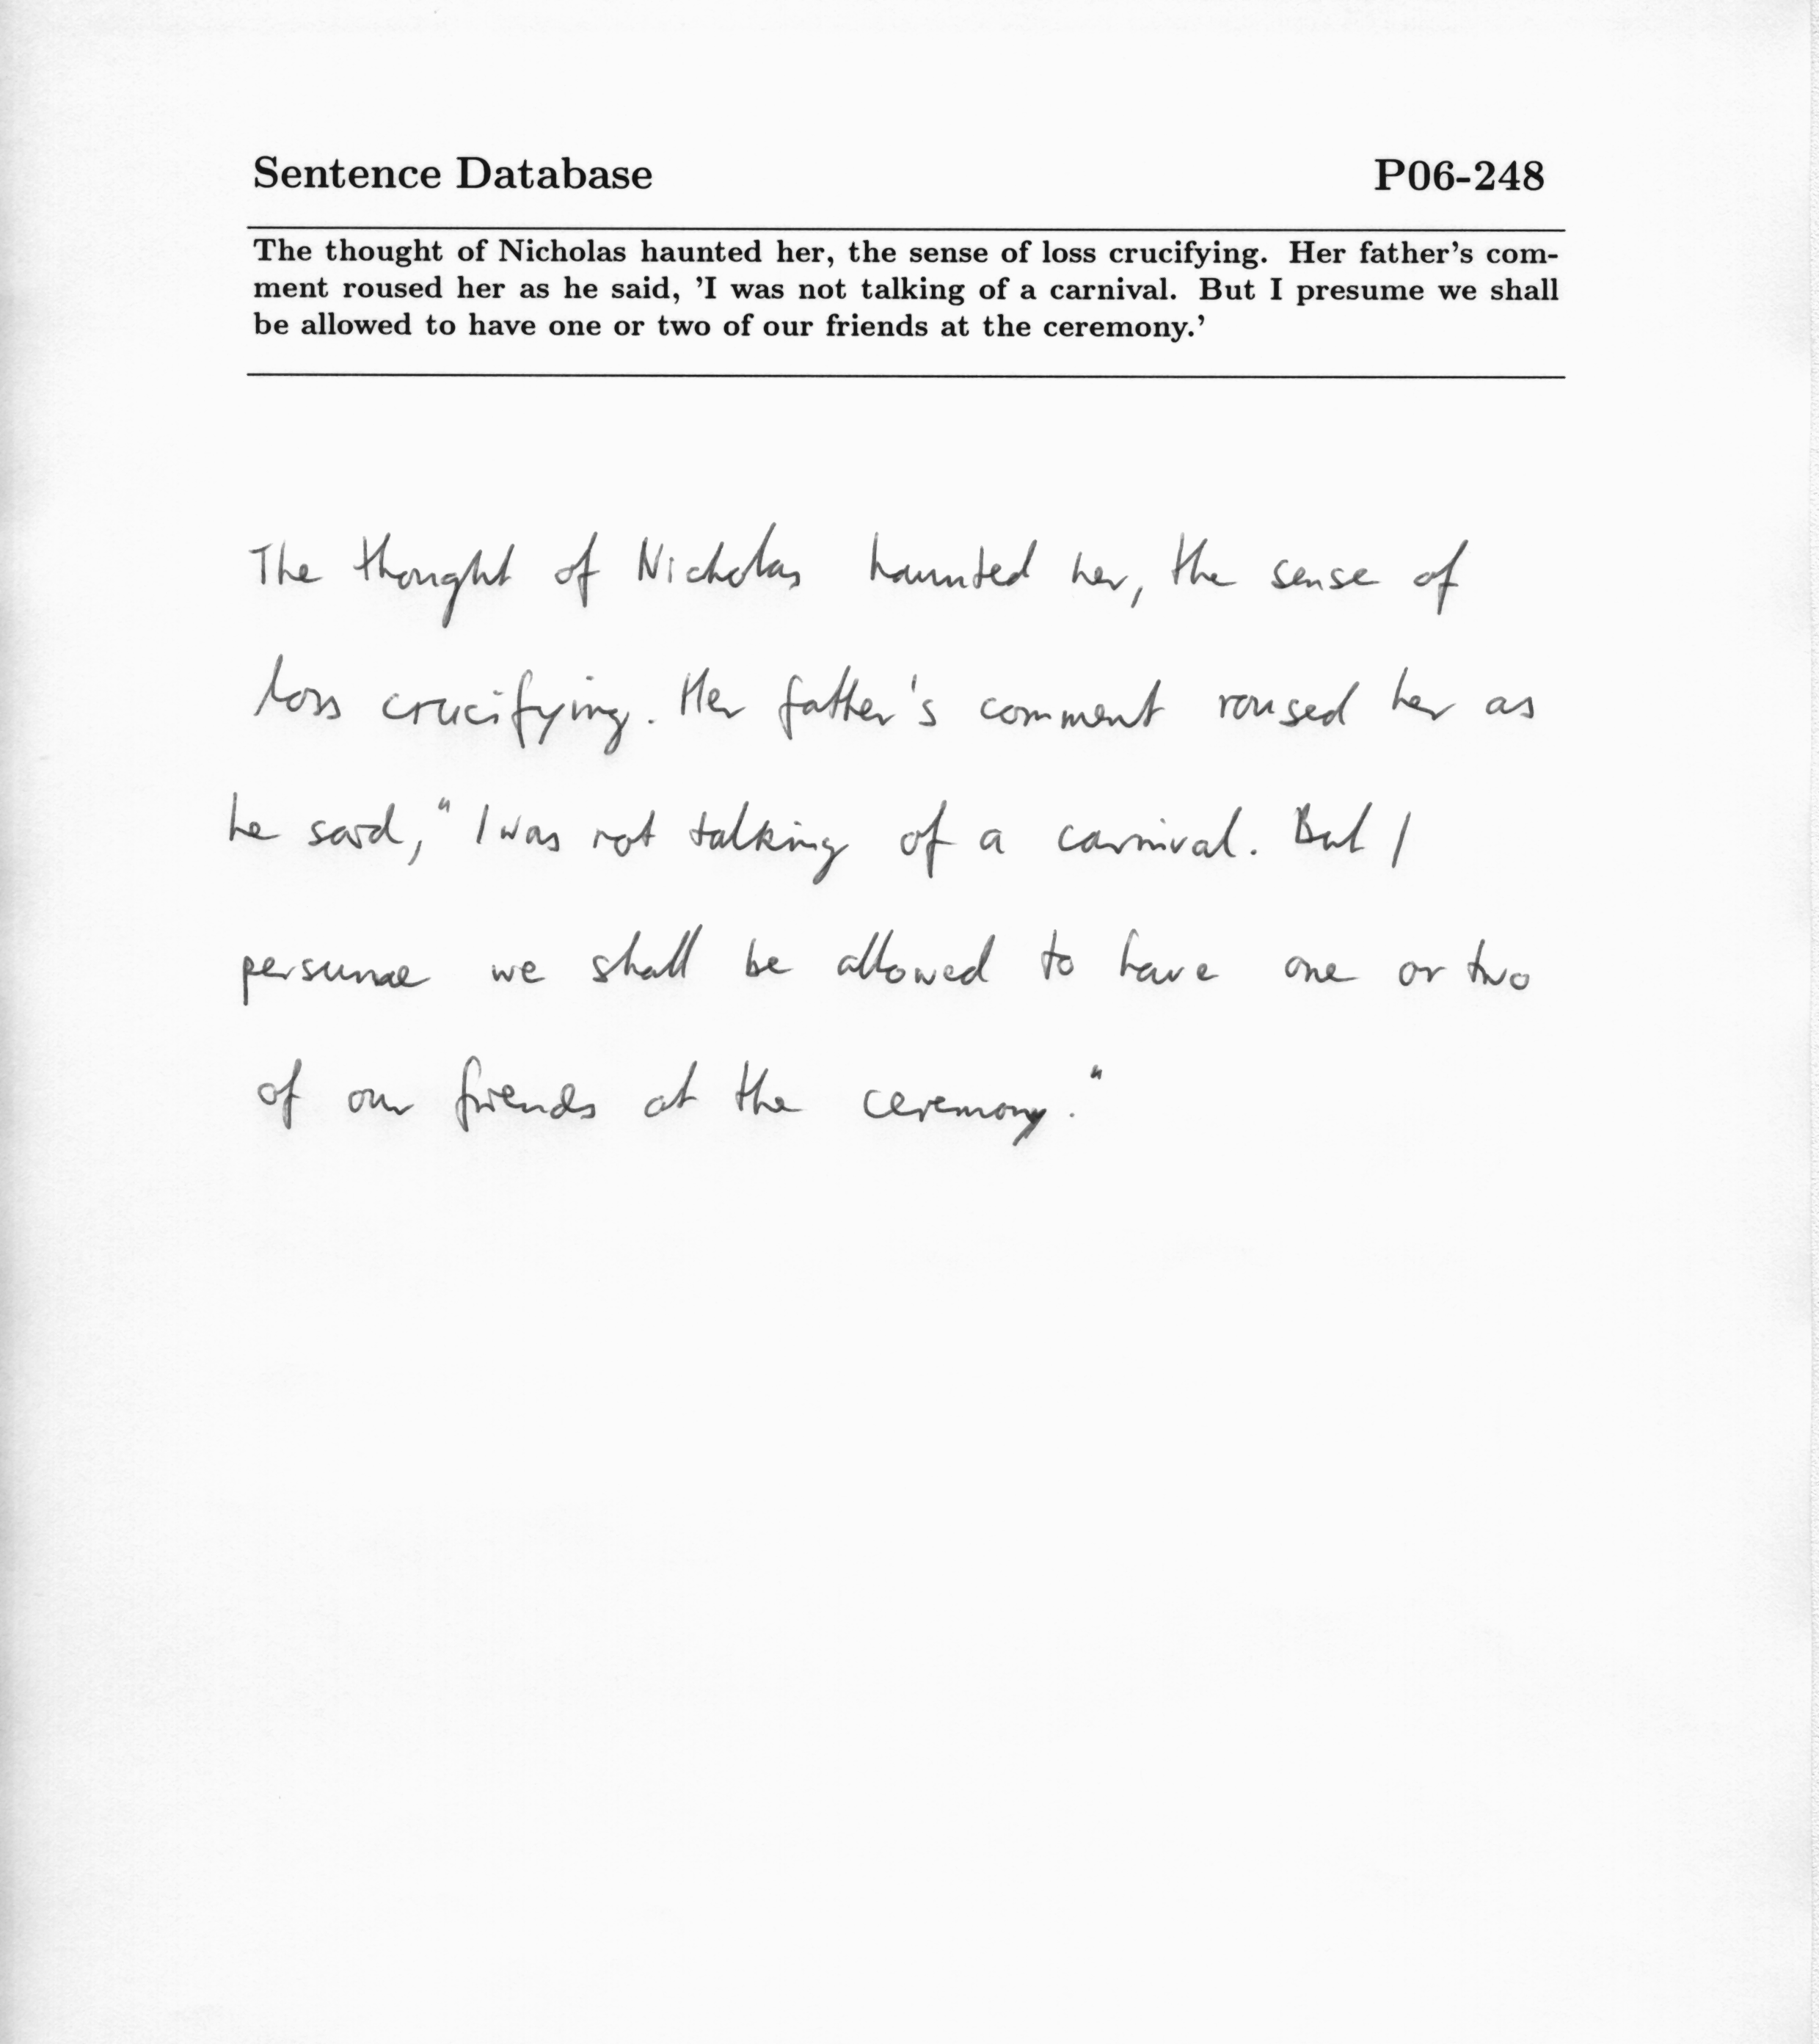 Sentence Database P06-248
The thought of Nicholas haunted her, the sense of loss crucifying. Her father's com-
ment roused her as he said, 'I was not talking of a carnival. But I presume we shall
be allowed to have one or two of our friends at the ceremony.'
The thought of Nicholas haunted her, the sense of
loss crucifying. Her father's comment roused her as
he said, "I was not talking of a carnival. But I
persume we shall be allowed to have one or two
of our friends at the ceremony."